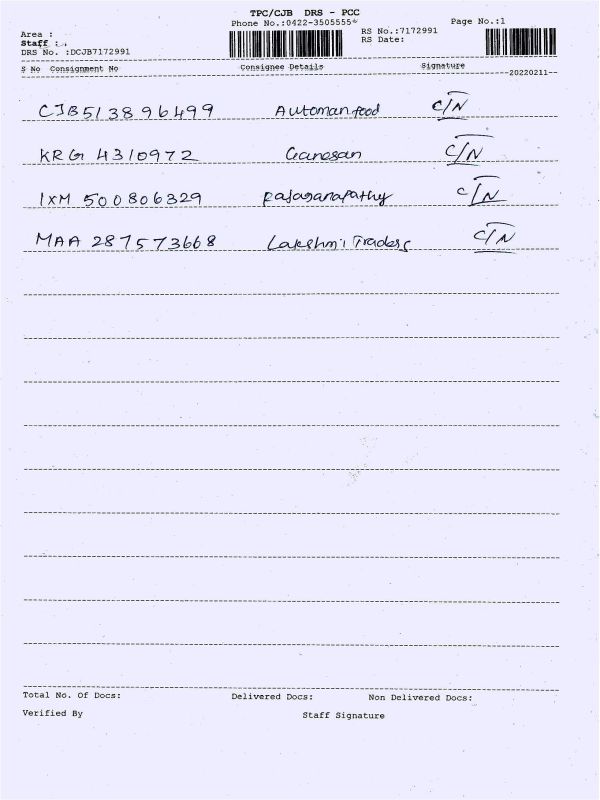 TPC/CJB DRS - PCC
Phone No.:0422-3505555* Page No.:1
Area : RS No.:7172991
Staff : RS Date:
DRS No. :DCJB7172991
S No Consignment No Consignee Details Signature
20220211
CJB513896499 Automan food C/N
KRG 4310972 Ganesan C/N
IXM 500806329 Rajaganapathy C/N
MAA 287573668 Lakshmi Traders C/N
Total No. Of Docs: Delivered Docs: Non Delivered Docs:
Verified By Staff Signature